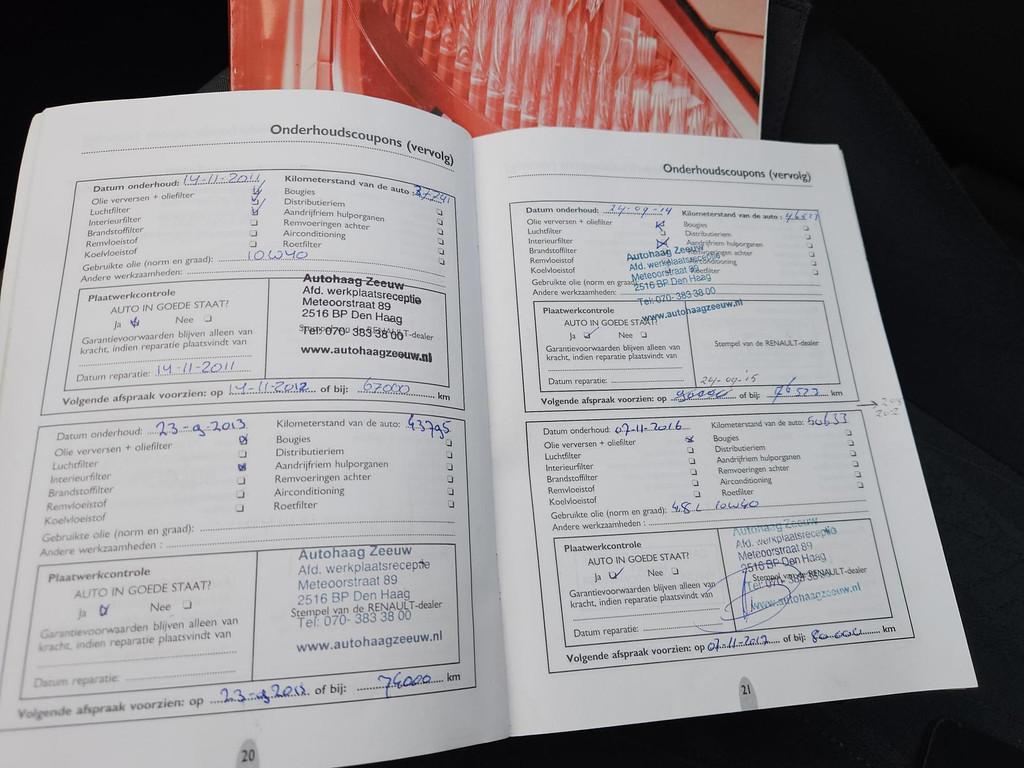 Onderhoudscoupons (vervolg)
Datum onderhoud: 14-11-2011 Kilometerstand van de auto: 37741
Olie verversen + oliefilter Bougies
Luchtfilter Distributieriem
Interieurfilter Aandrijfriem hulporganen
Brandstoffilter Remvoeringen achter
Remvloeistof Airconditioning
Koelvloeistof Roetfilter
Gebruikte olie (norm en graad): 10W40
Andere werkzaamheden:
Plaatwerkcontrole
AUTO IN GOEDE STAAT?
Ja Nee
Garantievoorwaarden blijven alleen van
kracht, indien reparatie plaatsvindt van
Datum reparatie: 14-11-2011
Autohaag Zeeuw
Afd. werkplaatsreceptie
Meteoorstraat 89
2516 BP Den Haag
Stempel van de RENAULT-dealer
Tel: 070- 383 38 00
www.autohaagzeeuw.nl
Volgende afspraak voorzien: op 14-11-2012 of bij: 67000 km
Datum onderhoud: 23-9-2013 Kilometerstand van de auto: 43795
Olie verversen + oliefilter Bougies
Luchtfilter Distributieriem
Interieurfilter Aandrijfriem hulporganen
Brandstoffilter Remvoeringen achter
Remvloeistof Airconditioning
Koelvloeistof Roetfilter
Gebruikte olie (norm en graad):
Andere werkzaamheden:
Plaatwerkcontrole
AUTO IN GOEDE STAAT?
Ja Nee
Garantievoorwaarden blijven alleen van
kracht, indien reparatie plaatsvindt van
Datum reparatie:
Autohaag Zeeuw
Afd. werkplaatsreceptie
Meteoorstraat 89
2516 BP Den Haag
Stempel van de RENAULT-dealer
Tel: 070- 383 38 00
www.autohaagzeeuw.nl
Volgende afspraak voorzien: op of bij: 74000 km
20
Onderhoudscoupons (vervolg)
Datum onderhoud: 24-09-14 Kilometerstand van de auto:
Olie verversen + oliefilter Bougies
Luchtfilter Distributieriem
Interieurfilter Aandrijfriem hulporganen
Brandstoffilter Remvoeringen achter
Remvloeistof Airconditioning
Koelvloeistof Roetfilter
Gebruikte olie (norm en graad):
Andere werkzaamheden:
Autohaag Zeeuw
Afd. werkplaatsreceptie
Meteoorstraat 89
2516 BP Den Haag
Tel: 070- 383 38 00
www.autohaagzeeuw.nl
Plaatwerkcontrole
AUTO IN GOEDE STAAT?
Ja Nee
Garantievoorwaarden blijven alleen van
kracht, indien reparatie plaatsvindt van
Datum reparatie:
Stempel van de RENAULT-dealer
24-09-'15
Volgende afspraak voorzien: op of bij: 76523 km
Datum onderhoud: 07-11-2016 Kilometerstand van de auto: 50633
Olie verversen + oliefilter Bougies
Luchtfilter Distributieriem
Interieurfilter Aandrijfriem hulporganen
Brandstoffilter Remvoeringen achter
Remvloeistof Airconditioning
Koelvloeistof Roetfilter
Gebruikte olie (norm en graad): 4.8 L 10W40
Andere werkzaamheden:
Plaatwerkcontrole
AUTO IN GOEDE STAAT?
Ja Nee
Garantievoorwaarden blijven alleen van
kracht, indien reparatie plaatsvindt van
Datum reparatie:
Autohaag Zeeuw
Afd. werkplaatsreceptie
Meteoorstraat 89
2516 BP Den Haag
Stempel van de RENAULT-dealer
Tel: 070- 383 38 00
www.autohaagzeeuw.nl
Volgende afspraak voorzien: op 07-11-2017 of bij: 80.000 km
21